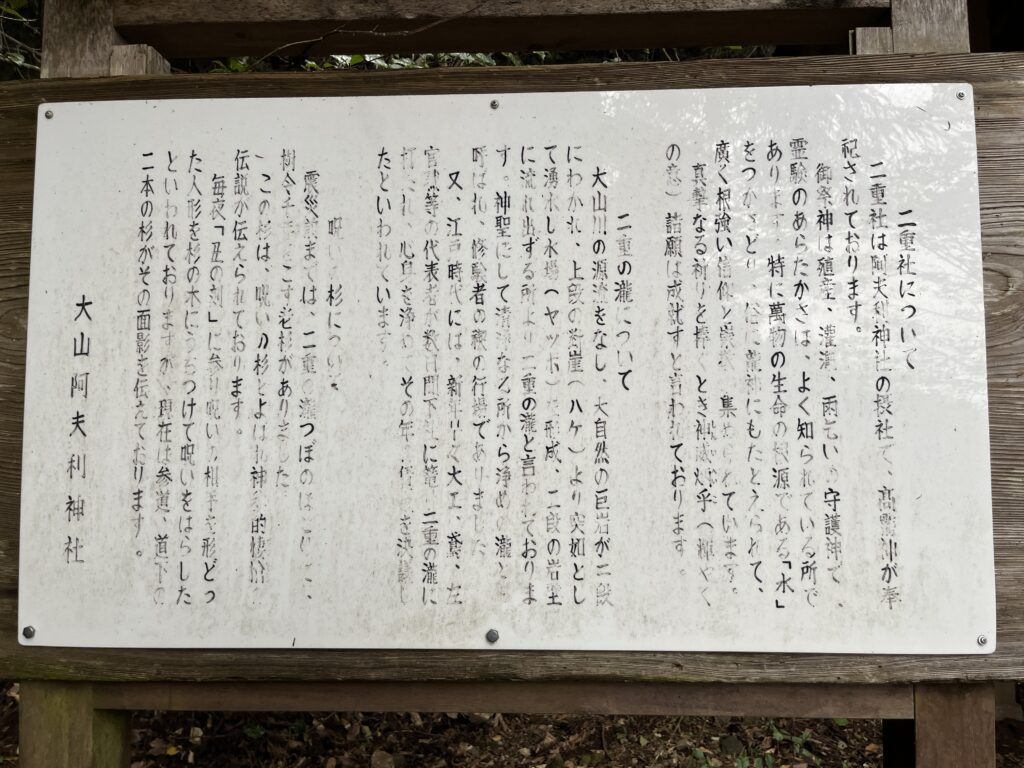 二重社について
二重社は阿夫利神社の摂社で、高龗神が奉
祀されております。
御祭神は殖産、灌漑、雨乞い 守護神で、
霊験のあらたかさは、よく知られている所で
あります。特に萬物の生命の根源である「水」
をつかさどり、 に龍神にもたとえられて、
廣く根強い信仰と 集められています。
真摯なる祈りを捧ぐとき神威 乎(輝やく
の意)諸願は成就すと言われております。
二重の瀧について
大山川の源流をなし、大自然の巨岩が二段
にわかれ、上段の断崖(ハケ)より突如とし
て湧水し水場(ヤツボ)を形成、二段の岩壁
に流れ出ずる所より二重の瀧と言われておりま
す。神聖にして清浄なる所から浄めの瀧と
呼ばれ、修験者の禊の行場でありました。
又、江戸時代には、新年早々大工、鳶、左
官 等の代表者が数日間下社に籠り二重の瀧に
打たれ、心身を浄めて、その年の を決議し
たといわれています。
呪いの杉について
震災前までは、二重の瀧つぼのほとりに、
樹令千年をこす老杉がありました。
この杉は、呪いの杉とよばれ神秘的
伝説が伝えられております。
毎夜「丑の刻」に参り呪いの相手を形どっ
た人形を杉の木にうちつけて呪いをはらした
といわれておりますが、現在は参道、道下の
二本の杉がその面影を伝えております。
大山阿夫利神社